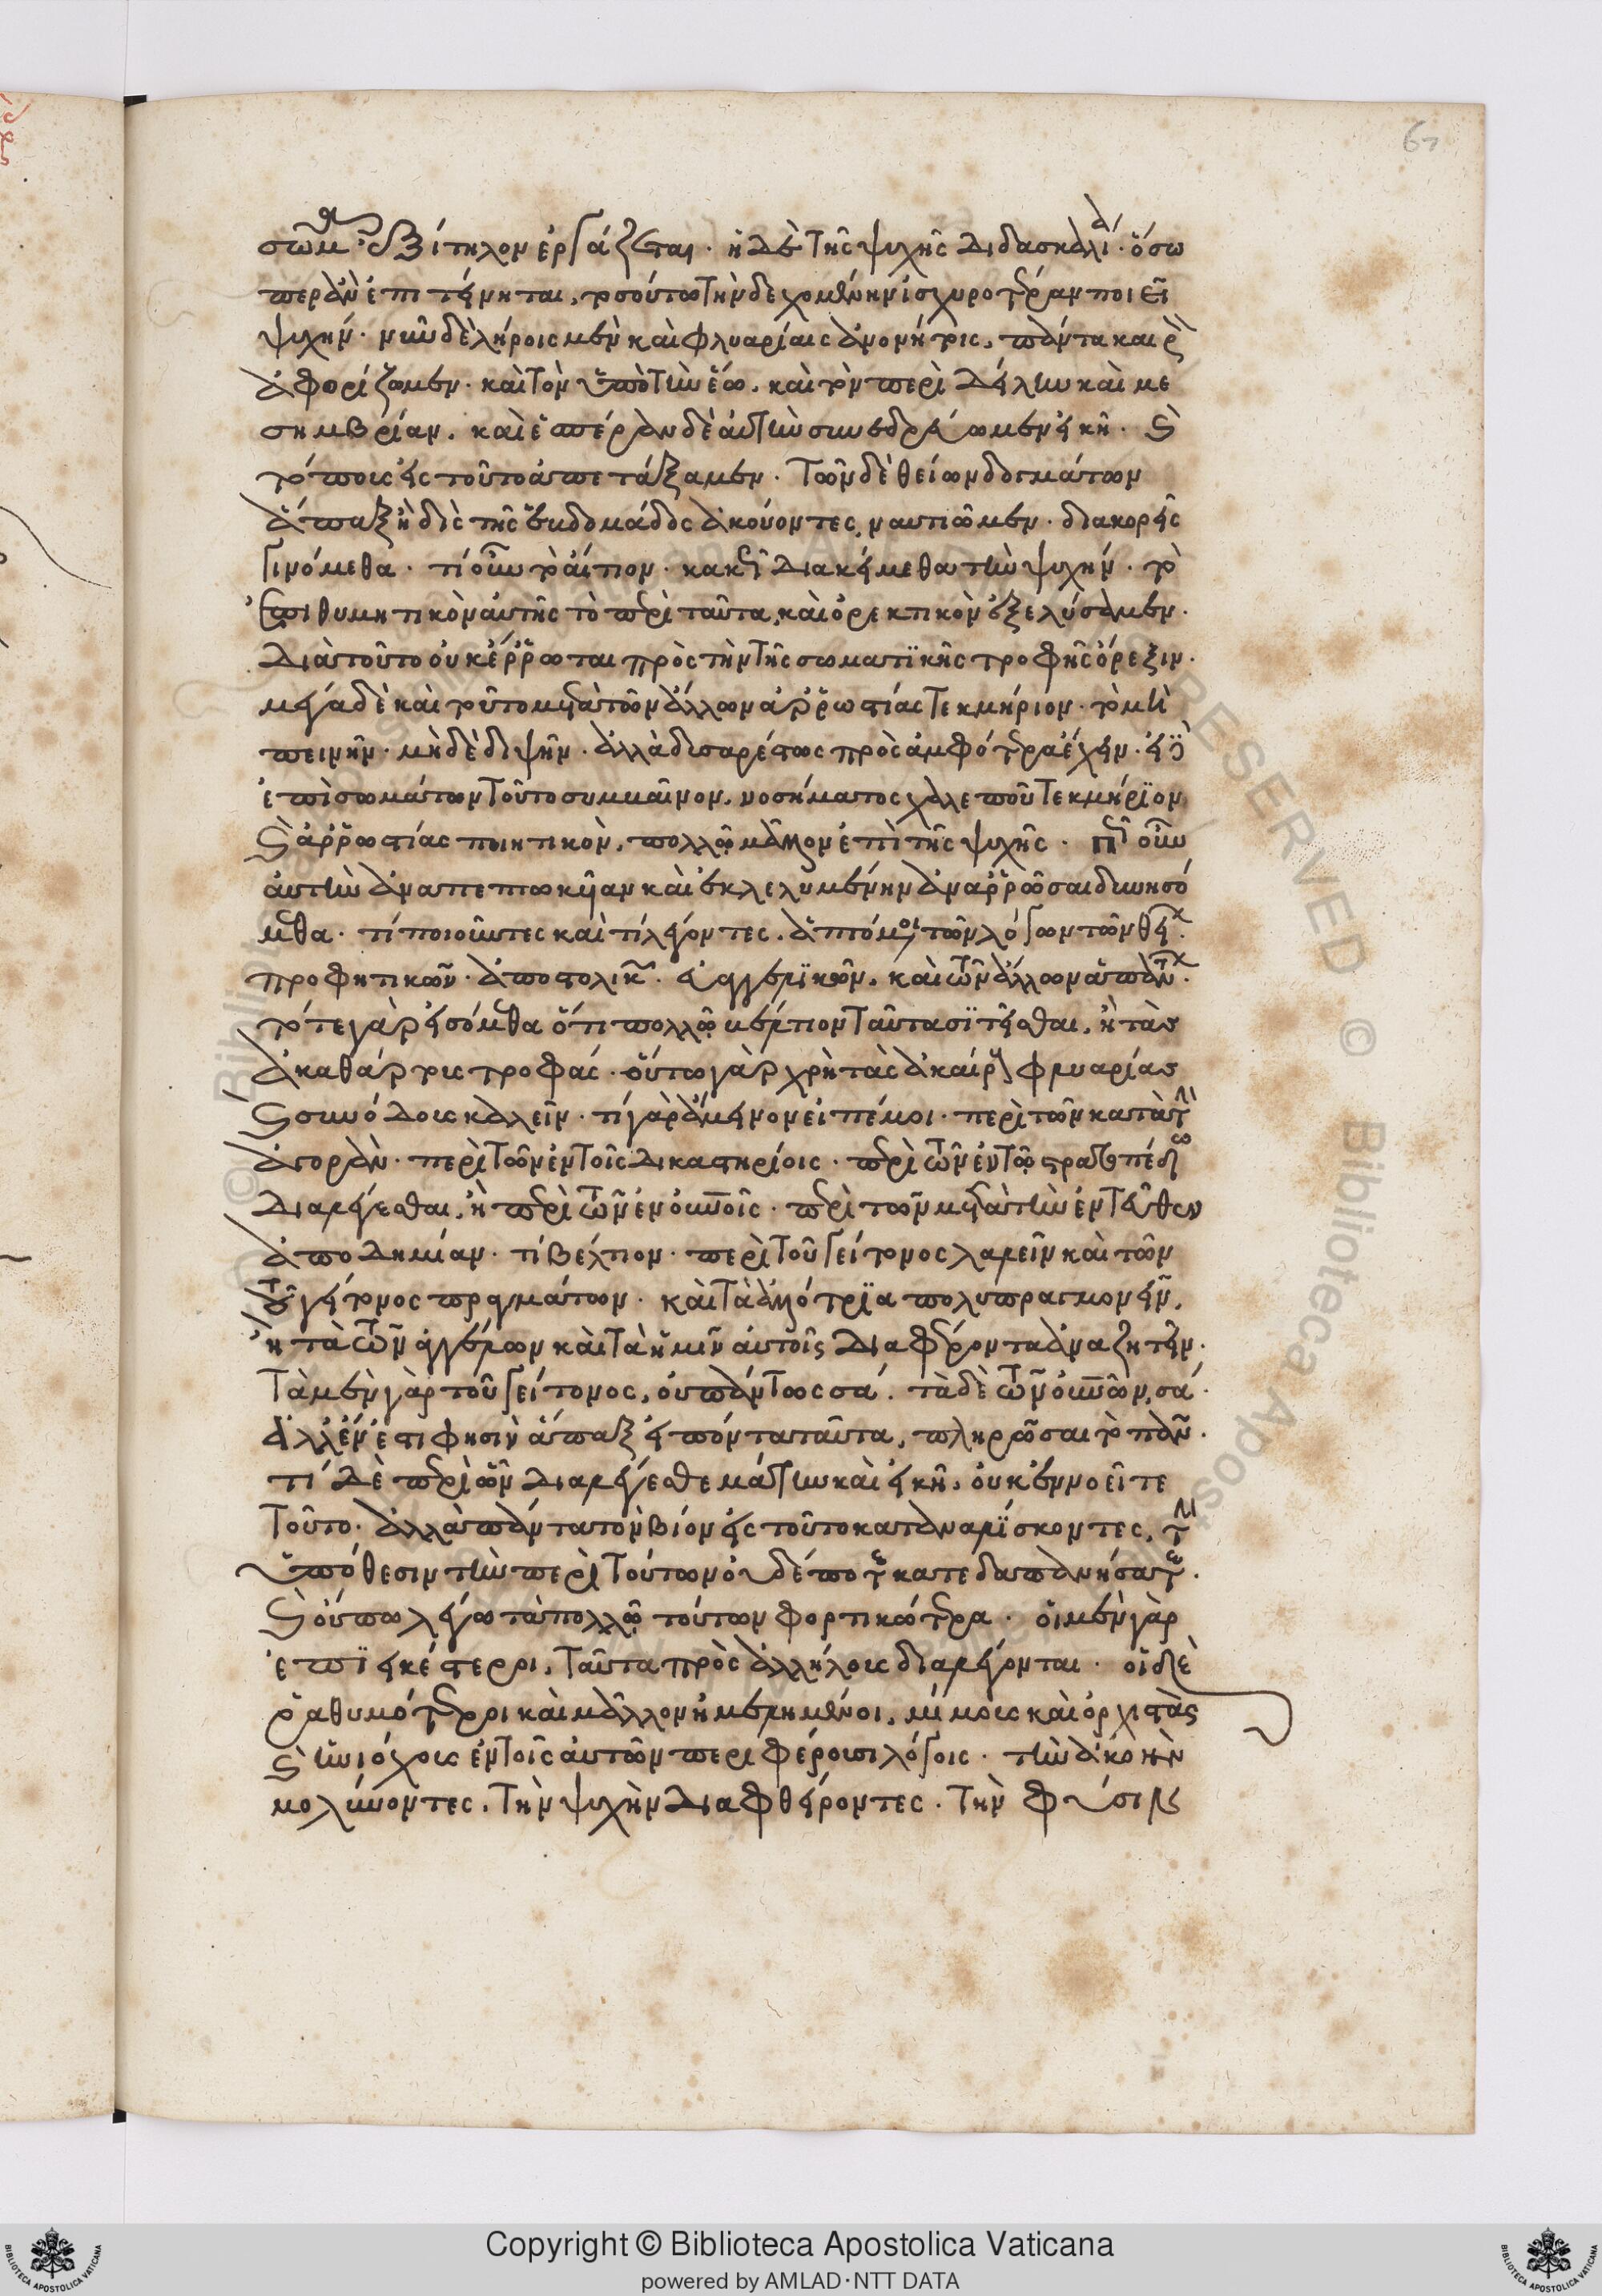 67
σῶμα ἐξίτηλον ἐργάζεται· ἡ δὲ τῆς ψυχῆς διδασκαλία· ὅσω
περ ἂν ἐπιτείνηται, τοσούτω τὴν δεχομένην ἰσχυροτέραν ποιεῖ
ψυχήν· νῦν δὲ λήροις μὲν καὶ φλυαρίαις ἀνονήτοις, πάντα καιρὸν
ἀφορίζομεν· καὶ τὸν ὑπὸ τὴν ἕω, καὶ τὸν περὶ δείλην καὶ με
σημβρίαν, καὶ ἑσπέραν δὲ αὐτὴν συνεδρεύομεν εἰκῆ· καὶ
τόπους εἰς τοῦτο ἀπετάξαμεν· τῶν δὲ θείων δογμάτων
ἅπαξ ἢ δὶς τῆς ἑβδομάδος ἀκούοντες, ναυτιῶμεν· διακορεῖς
γινόμεθα· τί οὖν τὸ αἴτιον· κακῶς διακείμεθα τὴν ψυχήν· τὸ
ἐπιθυμητικὸν αὐτῆς τὸ περὶ ταῦτα, καὶ ὀρεκτικὸν ἐξελύσαμεν·
διὰ τοῦτο οὐκ ἔρρωται πρὸς τὴν τῆς σωματϊκῆς τροφῆς ὄρεξιν·
μέγα δὲ καὶ τοῦτο μετὰ τῶν ἄλλων ἀρρωστίας τεκμήριον· τὸ μὴ
πεινῆν· μὴ δὲ διψῆν· ἀλλὰ δυσαρέστως πρὸς ἀμφότερα ἔχειν· εἰ δὲ
ἐπὶ σωμάτων τοῦτο συμβαῖνον, νοσήματος χαλεποῦ τεκμήριον
καὶ ἀρρωστίας ποιητικὸν, πολλῷ μᾶλλον ἐπὶ τῆς ψυχῆς· πῶς οὖν
αὐτὴν ἀναπεπτωκυῖαν καὶ ἐκλελυμένην ἀναρρῶσαι δυνησό
μεθα· τί ποιοῦντες καὶ τί λέγοντες, ἁπτόμενοι τῶν λόγων τῶν θείων·
προφητικῶν· ἀποστολικῶν· εὐαγγελικῶν, καὶ τῶν ἄλλων ἁπάντων·
τότε γὰρ εἰσόμεθα ὅτι πολλῷ βέλτιον ταῦτα σϊτεῖσθαι, ἢ τὰς
ἀκαθάρτοις τροφάς· οὕτω γὰρ χρὴ τὰς ἀκαίρους φλυαρίας
καὶ συνόδους καλεῖν· τί γὰρ ἄμεινον εἰπέ μοι· περὶ τῶν κατὰ τὴν
ἀγορὰν· περὶ τῶν ἐν τοῖς δικαστηρίοις· περὶ τῶν ἐν τῷ στρατοπέδῳ
διαλέγεσθαι, ἢ περὶ τῶν ἐν οὐνοῖς· περὶ τῶν μετὰ τὴν ἐντεῦθεν
ἀποδημίαν· τί βέλτιον· περὶ τοῦ γείτονος λαλεῖν καὶ τῶν
τοῦ γείτονος πραγμάτων· καὶ τὰ ἀλλότρϊα πολυπραγμονεῖν,
ἢ τὰ τῶν ἀγγέλων καὶ τὰ ἡμῖν αὐτοῖς διαφέροντα ἀναζητεῖν·
τὰ μὲν γὰρ τοῦ γείτονος, οὐ πάντως σά· τὰ δὲ τῶν οὐνῶν, σά·
ἀλλ' ἔνεστι φησὶν ἅπαξ εἰπόντα ταῦτα, πληρῶσαι τὸ πᾶν·
τί δὲ περὶ ὧν διαλέγεσθε μάτην καὶ εἰκῆ, οὐκ ἐννοεῖτε
τοῦτο· ἀλλὰ πάντα τὸν βίον εἰς τοῦτο καταναλϊσκοντες, τὴν
ὑπόθεσιν τὴν περὶ τούτων οὐδέποτε κατεδαπανήσατε·
καὶ οὔπω λέγω τὰ πολλῷ τούτων φορτικώτερα· οἱ μὲν γὰρ
ἐπϊεικέστεροι, ταῦτα πρὸς ἀλλήλους διαλέγονται· οἱ δὲ
ῥᾳθυμότεροι καὶ μᾶλλον ἠμελημένοι, μίμους καὶ ὀρχιστὰς
καὶ ἡνιόχους ἐν τοῖς αὐτῶν περιφέρουσι λόγοις· τὴν ἀκοὴν
μολύνοντες, τὴν ψυχὴν διαφθείροντες· τὴν φύσιν
Copyright © Biblioteca Apostolica Vaticana
powered by AMLAD·NTT DATA